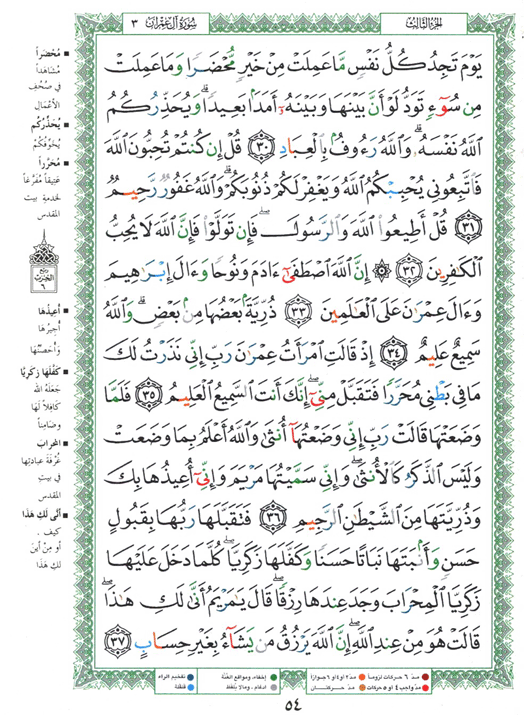 الجزء الثالث
سورة آل عمران ٣
يَوْمَ تَجِدُ كُلُّ نَفْسٍ مَّا عَمِلَتْ مِنْ خَيْرٍ مُّحْضَرًا وَمَا عَمِلَتْ
مِن سُوٓءٍ تَوَدُّ لَوْ أَنَّ بَيْنَهَا وَبَيْنَهُۥٓ أَمَدًۢا بَعِيدًا ۗ وَيُحَذِّرُكُمُ
ٱللَّهُ نَفْسَهُۥ ۗ وَٱللَّهُ رَءُوفٌۢ بِٱلْعِبَادِ ٣٠ قُلْ إِن كُنتُمْ تُحِبُّونَ ٱللَّهَ
فَٱتَّبِعُونِى يُحْبِبْكُمُ ٱللَّهُ وَيَغْفِرْ لَكُمْ ذُنُوبَكُمْ ۗ وَٱللَّهُ غَفُورٌ رَّحِيمٌ
٣١ قُلْ أَطِيعُوا۟ ٱللَّهَ وَٱلرَّسُولَ ۖ فَإِن تَوَلَّوْا۟ فَإِنَّ ٱللَّهَ لَا يُحِبُّ
ٱلْكَٰفِرِينَ ٣٢ ۞ إِنَّ ٱللَّهَ ٱصْطَفَىٰٓ ءَادَمَ وَنُوحًا وَءَالَ إِبْرَٰهِيمَ
وَءَالَ عِمْرَٰنَ عَلَى ٱلْعَٰلَمِينَ ٣٣ ذُرِّيَّةًۢ بَعْضُهَا مِنۢ بَعْضٍ ۗ وَٱللَّهُ
سَمِيعٌ عَلِيمٌ ٣٤ إِذْ قَالَتِ ٱمْرَأَتُ عِمْرَٰنَ رَبِّ إِنِّى نَذَرْتُ لَكَ
مَا فِى بَطْنِى مُحَرَّرًا فَتَقَبَّلْ مِنِّىٓ ۖ إِنَّكَ أَنتَ ٱلسَّمِيعُ ٱلْعَلِيمُ ٣٥ فَلَمَّا
وَضَعَتْهَا قَالَتْ رَبِّ إِنِّى وَضَعْتُهَآ أُنثَىٰ وَٱللَّهُ أَعْلَمُ بِمَا وَضَعَتْ
وَلَيْسَ ٱلذَّكَرُ كَٱلْأُنثَىٰ ۖ وَإِنِّى سَمَّيْتُهَا مَرْيَمَ وَإِنِّىٓ أُعِيذُهَا بِكَ
وَذُرِّيَّتَهَا مِنَ ٱلشَّيْطَٰنِ ٱلرَّجِيمِ ٣٦ فَتَقَبَّلَهَا رَبُّهَا بِقَبُولٍ
حَسَنٍ وَأَنۢبَتَهَا نَبَاتًا حَسَنًا وَكَفَّلَهَا زَكَرِيَّا ۖ كُلَّمَا دَخَلَ عَلَيْهَا
زَكَرِيَّا ٱلْمِحْرَابَ وَجَدَ عِندَهَا رِزْقًا ۖ قَالَ يَٰمَرْيَمُ أَنَّىٰ لَكِ هَٰذَا ۖ
قَالَتْ هُوَ مِنْ عِندِ ٱللَّهِ ۖ إِنَّ ٱللَّهَ يَرْزُقُ مَن يَشَآءُ بِغَيْرِ حِسَابٍ ٣٧
■ مُحْضَراً
مُشَاهَداً
في صُحُفِ
الأعْمَالِ
■ يُحَذِّرُكُم
يُخَوِّفُكُمْ
■ مُحَرَّراً
عَتِيقاً مُفَرَّغاً
لخدمةِ بيت
المقدس
ربع
الحزب
٦
■ أُعِيذُهَا
أُجِيرُهَا
وأُحَصِّنُهَا
■ كَفَّلَهَا زَكَرِيَّا
جَعَلَهُ الله
كافِلاً لَهَا
وضَامِناً
■ المِحْرَابَ
غُرْفَةَ عبادتِها
في بيتِ
المقدس
■ أَنَّى لَكِ هَذَا
كيف .
أو مِنْ أينَ
لكِ هَذَا
مدّ ٦ حركات لزوماً
مدّ ٢ أو ٤ أو ٦ جوازاً
مدّ واجب ٤ أو ٥ حركات
مدّ حركتان
إخفاء، ومواقع الغنّة
ادغام، وما لا يُلفظ
تفخيم الراء
قلقلة
٥٤